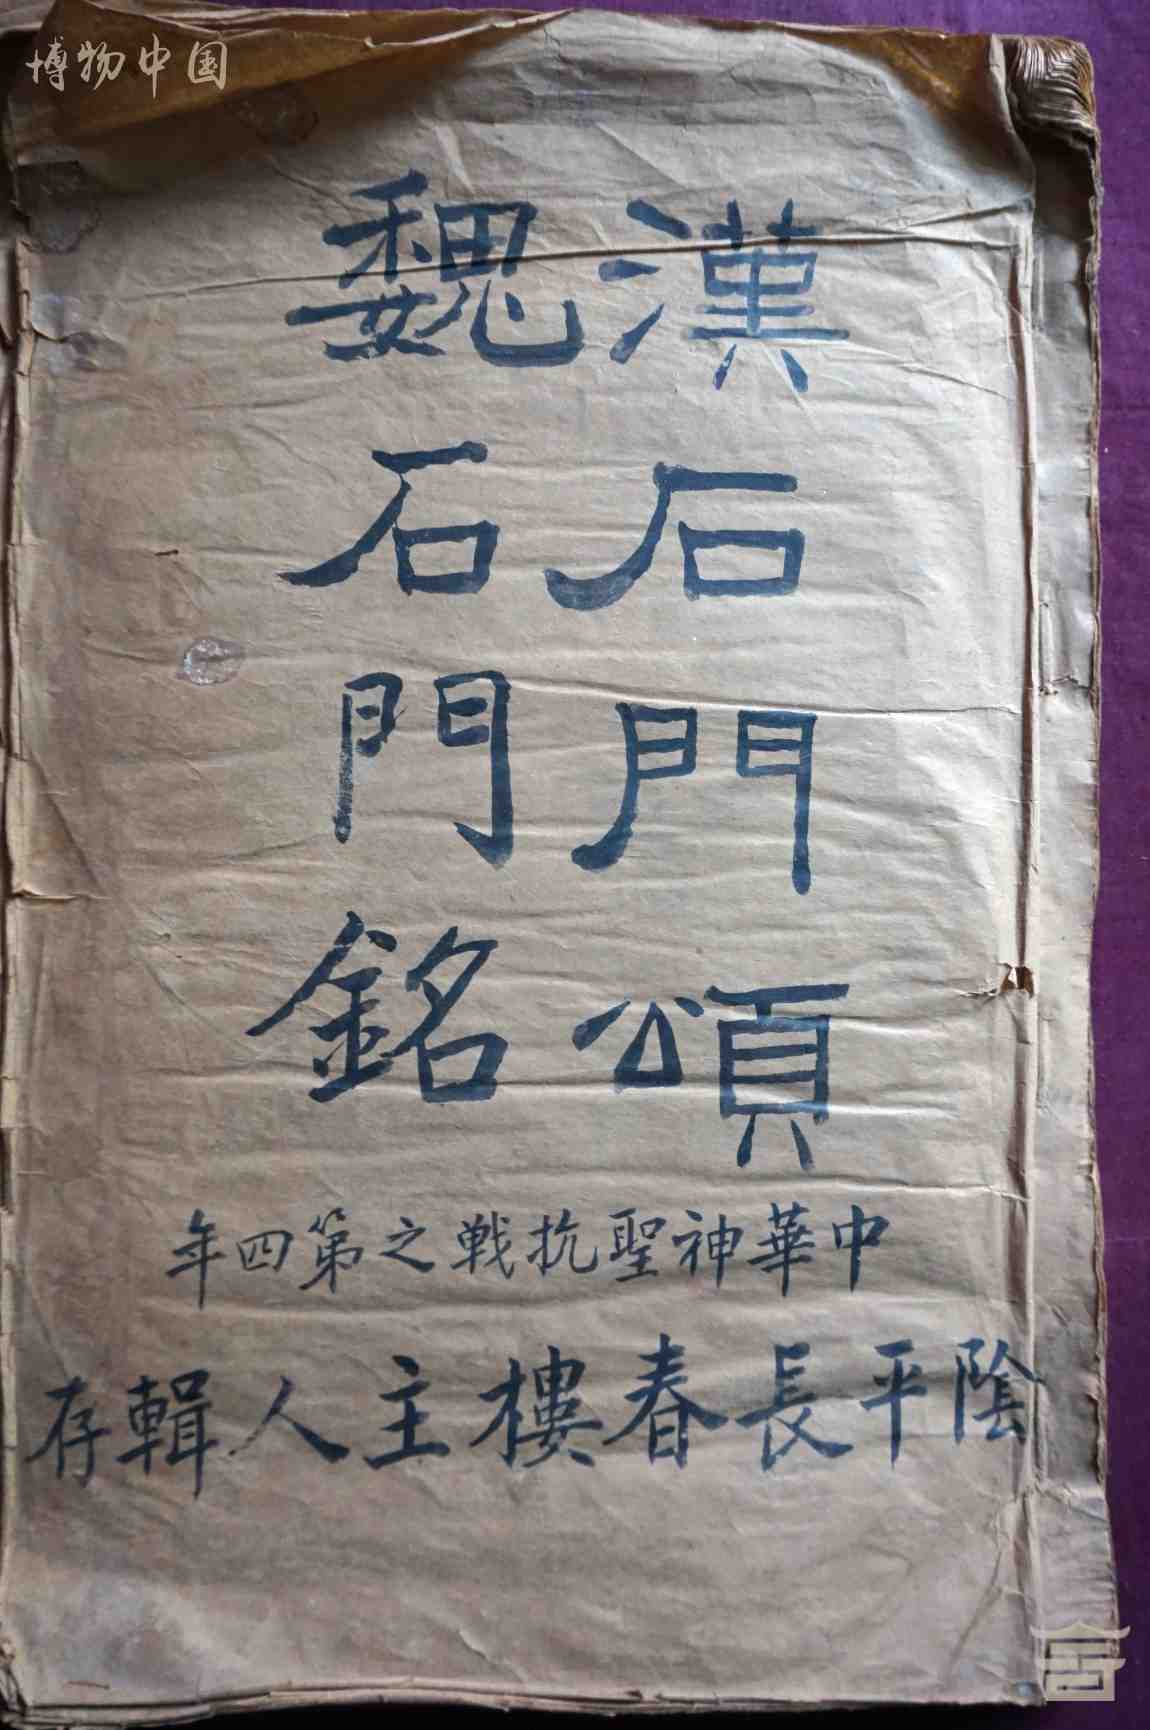 博物中国
漢石門頌
魏石門銘
中華神聖抗戰之第四年
陰平長春樓主人輯存